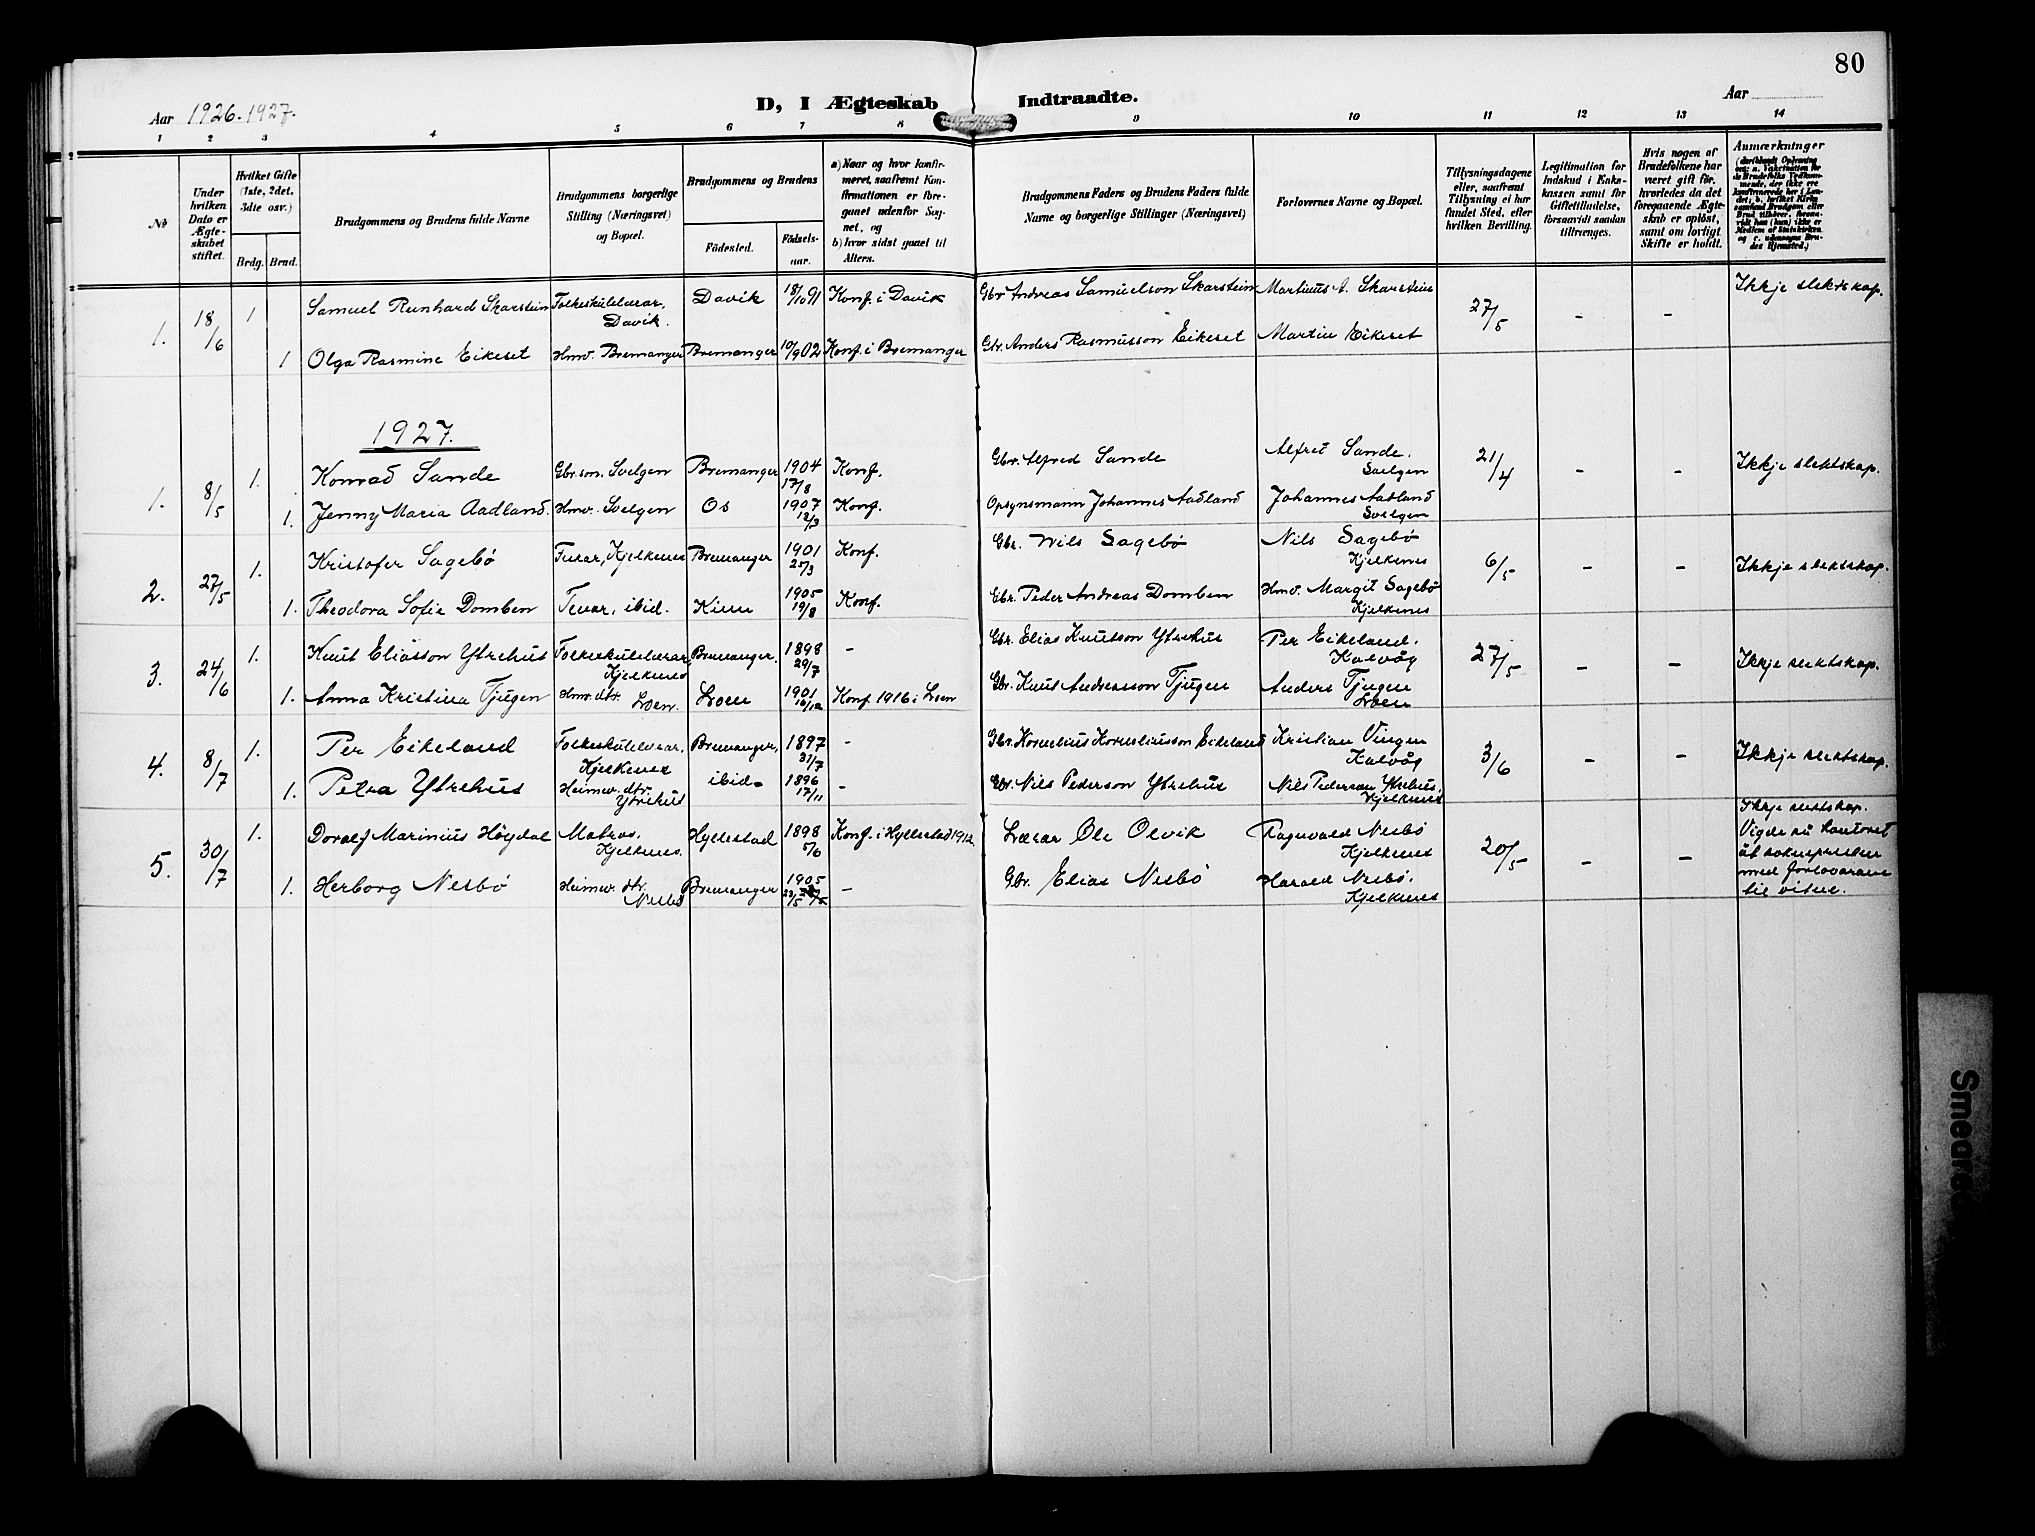 80
D, I Ægteskab Indtraadte.
Aar 1926-1927.
Aar
1 2 3 4 5 6 7 8 9 10 11 12 13 14
No
Under hvilken Dato er Ægteskabet stiftet.
Hvilket Gifte (1ste, 2det, 3die osv.)
Brdg. Brud.
Brudgommens og Brudens fulde Navne
Brudgommens borgerlige Stilling (Næringsvei) og Bopæl.
Brudgommens og Brudens
Födested.
Födsels-aar.
a) Naar og hvor konfirmeret, saafremt Konfirmationen er foregaaet udenfor Sognet, og
b) hvor sidst gaaet til Alters.
Brudgommens Faders og Brudens Faders fulde Navne og borgerlige Stillinger (Næringsvei)
Forlovernes Navne og Bopæl.
Tillysningsdagene eller, saafremt Tillysning ei har fundet Sted, efter hvilken Bevilling.
Legitimation for Indskud i Enkekassen samt for Giftetilladelse, forsaavidt saadan tiltrænges.
Hvis nogen af Brudefolkene har været gift før, hvorledes da det foregaaende Ægteskab er oplöst, samt om lovligt Skifte er holdt.
Anmærkninger
1. 18/6 1 Samuel Reinhard Skarstein Folkeskulelærar, Davik. Davik 18/10 91 Konf. i Davik Gbr Andreas Samuelson Skarstein Martinus A. Skarstein 27/5 - - Ikkje slektskap.
1 Olga Rasmine Eikeset Hmv. Bremanger Bremanger 10/9 02 Konf. i Bremanger Gbr. Anders Rasmusson Eikeset Martin Eikeset
1927.
1. 8/5 1. Konrad Sande Gbr.son. Svelgen Bremanger 1904 17/8 Konf. Gbr. Alfred Sande Alfred Sande. Svelgen 21/4 - - Ikkje slektskap.
1. Jenny Maria Aadland. Hmv. Svelgen Os 1907 12/3 Konf. Opsynsmann Johannes Aadland Johannes Aadland Svelgen
2. 27/5 1. Kristofer Sagebö Fiskar, Kjelkenes Bremanger 1901 25/3 Konf. Gbr. Nils Sagebö Nils Sagebö Kjelkenes 6/5 - - Ikkje slektskap.
1. Theodora Sofie Domben Tenar, ibid. Kinn 1905 19/8 Konf. Gbr. Peder Andreas Domben Hmv. Margit Sagebö Kjelkenes
3. 24/6 1. Knut Eliasson Ytrehus Folkeskulelærar, Kjelkenes Bremanger. 1898 29/7 - Gbr. Elias Knutson Ytrehus Per Eikeland. Kalvåg 27/5 - - Ikkje slektskap.
1. Anna Kristina Tjugen Hmv. dtr. Loen. Loen 1901 16/12 Konf 1916 i Loen Gbr. Knut Andreasson Tjugen Anders Tjugen Loen
4. 8/7 1. Per Eikeland Folkeskulelærar, Kjelkenes Bremanger, 1897 31/7 - Gbr. Kornelius Korneliusson Eikeland Kristian Vingen Kalvåg 3/6 - - Ikkje slektskap.
1. Petra Ytrehus Heimev. dtr. Ytrehus ibid. 1896 17/11 - Gbr. Nils Pederson Ytrehus Nils Pederson Ytrehus, Kjelkenes
5. 30/7 1. Dorolf Marinius Höydal Matros. Kjelkenes. Hyllestad 1898 5/6 Konf. i Hyllestad 1912 Lærar Ole Olvik Ragnvald Nesbö Kjelkenes 20/5 - - Ikkje slektskap. Vigde på kontoret åt soknepresten med forlovarane til vitne.
1. Herborg Nesbö Heimev. dtr. Nesbö Bremanger 1905 - Gbr. Elias Nesbö Harald Nesbö. Kjelkenes